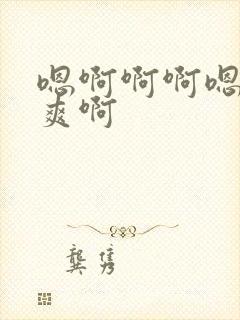 嗯啊啊啊嗯
爽啊
龚隽